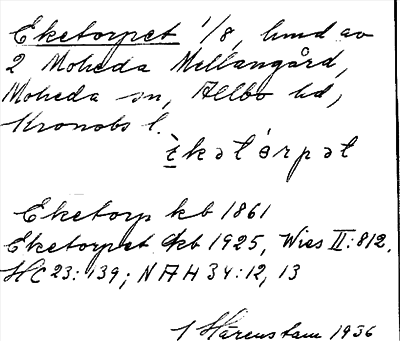 Eketorpet 1/8, hmd av
2 Moheda Mellangård,
Moheda sn, Allbo hd,
Kronobs l.
èkət órpət
Eketorp kb 1861
Eketorpet Gkb 1925, Wies II:812.
HC 23:139; NAH 34:12, 13
J Härenstam 1936